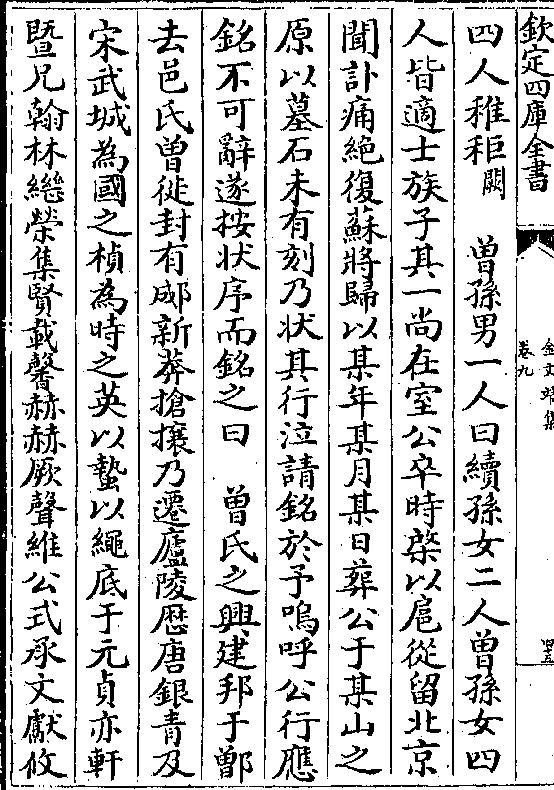 欽定四庫全書
金文靖集
卷九
四五
四人稚秬闕　曾孫男一人曰續孫女二人曾孫女四
人皆適士族子其一尚在室公卒時棨以扈從留北京
聞訃痛絕復蘇將歸以某年某月某日葬公于某山之
原以墓石未有刻乃状其行泣請銘於予嗚呼公行應
銘不可辭遂按状序而銘之曰　曾氏之興建邦于鄫
去邑氏曾徙封有郕新莽搶攘乃遷廬陵歴唐銀青及
宋武城為國之楨為時之英以蟄以繩底于元貞亦軒
暨兄翰林繼榮集賢載馨赫赫厥聲維公式承文獻攸